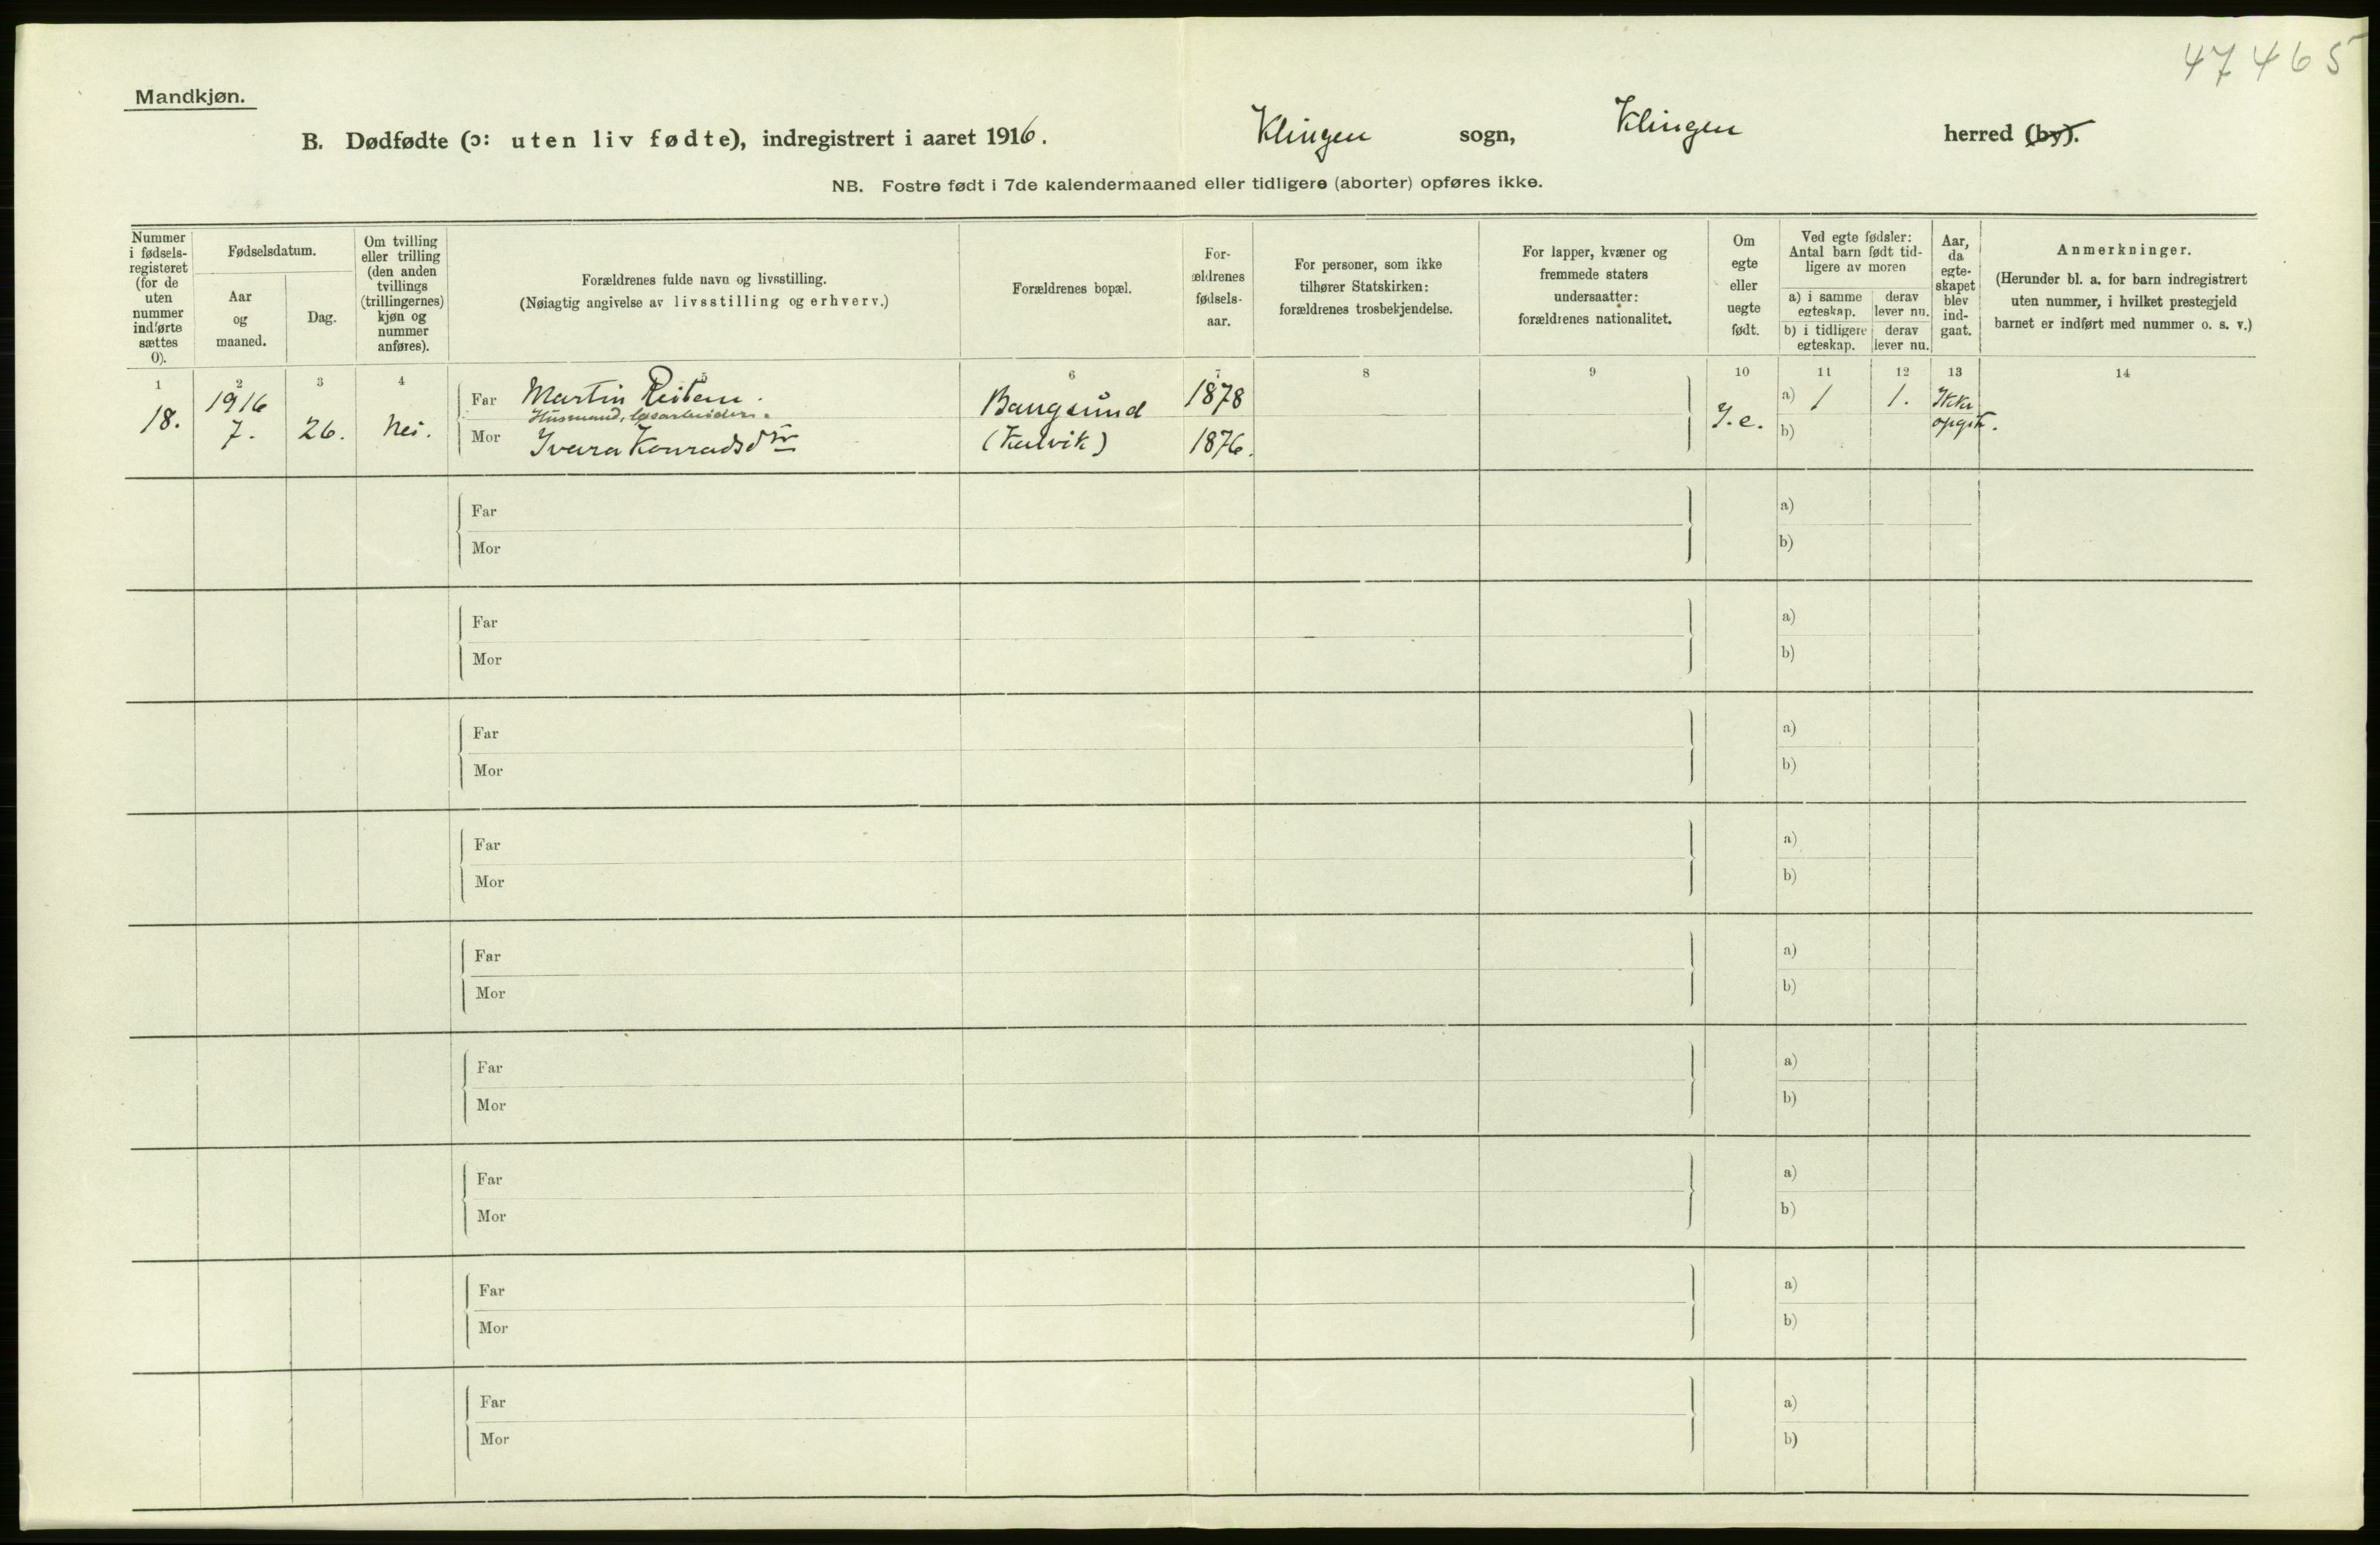 47465
Mandkjøn.
B. Dødfødte (ɔ: uten liv fødte), indregistrert i aaret 1916. Klingen sogn, Klingen herred (by).
NB. Fostre født i 7de kalendermaaned eller tidligere (aborter) opføres ikke.
Nummer
i fødsels-
registeret
(for de
uten
nummer
indførte
sættes
0).
Fødselsdatum.
Aar
og
maaned.
Dag.
Om tvilling
eller trilling
(den anden
tvillings
(trillingernes)
kjøn og
nummer
anføres).
Forældrenes fulde navn og livsstilling.
(Nøiagtig angivelse av livsstilling og erhverv.)
Forældrenes bopæl.
For-
ældrenes
fødsels-
aar.
For personer, som ikke
tilhører Statskirken:
forældrenes trosbekjendelse.
For lapper, kvæner og
fremmede staters
undersaatter:
forældrenes nationalitet.
Om
egte
eller
uegte
født.
Ved egte fødsler:
Antal barn født tid-
ligere av moren
a) i samme
egteskap.
derav
lever nu.
b) i tidligere
egteskap.
derav
lever nu.
Aar,
da
egte-
skapet
blev
ind-
gaat.
Anmerkninger.
(Herunder bl. a. for barn indregistrert
uten nummer, i hvilket prestegjeld
barnet er indført med nummer o. s. v.)
1 2 3 4 5 6 7 8 9 10 11 12 13 14
18.
1916
7.
26.
Nei.
Far Martin Reitan.
Husmand, løsarbeider.
Mor Ivara Konradsdtr
Bangsund
1878
1876.
I. e.
a) 1
1.
b)
Ikke
opgit.
Far a)
Mor b)
Far a)
Mor b)
Far a)
Mor b)
Far a)
Mor b)
Far a)
Mor b)
Far a)
Mor b)
Far a)
Mor b)
Far a)
Mor b)
Far a)
Mor b)